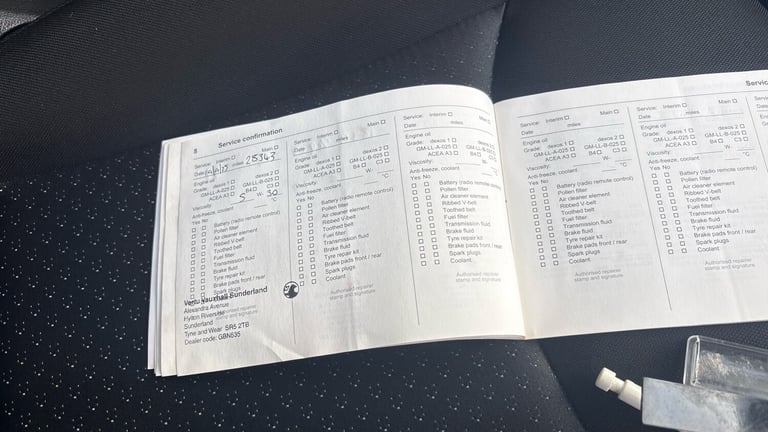 8 Service confirmation
Service: Interim ☐ Main ☐
Date miles 25343
Engine oil
Grade: dexos 1 ☐ dexos 2 ☐
GM-LL-A-025 ☐ GM-LL-B-025 ☐
ACEA A3 ☐ B4 ☐ C3 ☐
Viscosity: 5 W- 30
Anti-freeze, coolant °C
Yes No
☐ ☐ Battery (radio remote control)
☐ ☐ Pollen filter
☐ ☐ Air cleaner element
☐ ☐ Ribbed V-belt
☐ ☐ Toothed belt
☐ ☐ Fuel filter
☐ ☐ Transmission fluid
☐ ☐ Brake fluid
☐ ☐ Tyre repair kit
☐ ☐ Brake pads front / rear
☐ ☐ Spark plugs
Vertu Vauxhall Sunderland
Alexandra Avenue
Hylton Riverside
Sunderland
Tyne and Wear SR5 2TB
Dealer code: GBN535
Authorised repairer
stamp and signature
Service: Interim ☐ Main ☐
Date miles
Engine oil
Grade: dexos 1 ☐ dexos 2 ☐
GM-LL-A-025 ☐ GM-LL-B-025 ☐
ACEA A3 ☐ B4 ☐ C3 ☐
Viscosity: W- 
Anti-freeze, coolant °C
Yes No
☐ ☐ Battery (radio remote control)
☐ ☐ Pollen filter
☐ ☐ Air cleaner element
☐ ☐ Ribbed V-belt
☐ ☐ Toothed belt
☐ ☐ Fuel filter
☐ ☐ Transmission fluid
☐ ☐ Brake fluid
☐ ☐ Tyre repair kit
☐ ☐ Brake pads front / rear
☐ ☐ Spark plugs
☐ ☐ Coolant
Authorised repairer
stamp and signature
Service: Interim ☐ Main ☐
Date miles
Engine oil
Grade: dexos 1 ☐ dexos 2 ☐
GM-LL-A-025 ☐ GM-LL-B-025 ☐
ACEA A3 ☐ B4 ☐ C3 ☐
Viscosity: W-
Anti-freeze, coolant °C
Yes No
☐ ☐ Battery (radio remote control)
☐ ☐ Pollen filter
☐ ☐ Air cleaner element
☐ ☐ Ribbed V-belt
☐ ☐ Toothed belt
☐ ☐ Fuel filter
☐ ☐ Transmission fluid
☐ ☐ Brake fluid
☐ ☐ Tyre repair kit
☐ ☐ Brake pads front / rear
☐ ☐ Spark plugs
☐ ☐ Coolant
Authorised repairer
stamp and signature
Service: Interim ☐ Main ☐
Date miles
Engine oil
Grade: dexos 1 ☐ dexos 2 ☐
GM-LL-A-025 ☐ GM-LL-B-025 ☐
ACEA A3 ☐ B4 ☐ C3 ☐
Viscosity: W-
Anti-freeze, coolant °C
Yes No
☐ ☐ Battery (radio remote control)
☐ ☐ Pollen filter
☐ ☐ Air cleaner element
☐ ☐ Ribbed V-belt
☐ ☐ Toothed belt
☐ ☐ Fuel filter
☐ ☐ Transmission fluid
☐ ☐ Brake fluid
☐ ☐ Tyre repair kit
☐ ☐ Brake pads front / rear
☐ ☐ Spark plugs
☐ ☐ Coolant
Authorised repairer
stamp and signature
Service: Interim ☐ Main ☐
Date miles
Engine oil
Grade: dexos 1 ☐ dexos 2 ☐
GM-LL-A-025 ☐ GM-LL-B-025 ☐
ACEA A3 ☐ B4 ☐ C3 ☐
Viscosity: W-
Anti-freeze, coolant °C
Yes No
☐ ☐ Battery (radio remote control)
☐ ☐ Pollen filter
☐ ☐ Air cleaner element
☐ ☐ Ribbed V-belt
☐ ☐ Toothed belt
☐ ☐ Fuel filter
☐ ☐ Transmission fluid
☐ ☐ Brake fluid
☐ ☐ Tyre repair kit
☐ ☐ Brake pads front / rear
☐ ☐ Spark plugs
☐ ☐ Coolant
Authorised repairer
stamp and signature